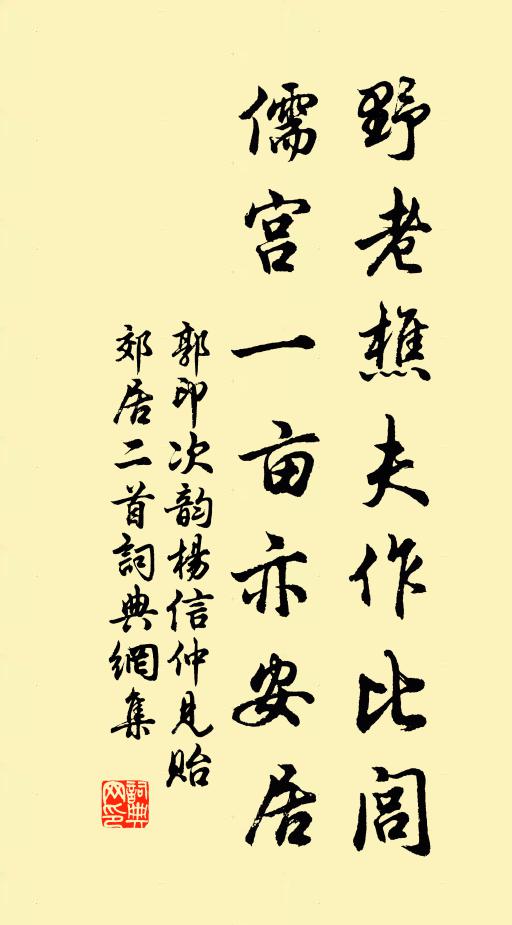 野老樵夫作比闾
儒宫一亩亦安居
郭印次韵楊信仲見贻
郊居二首詞典網集
詞典網印